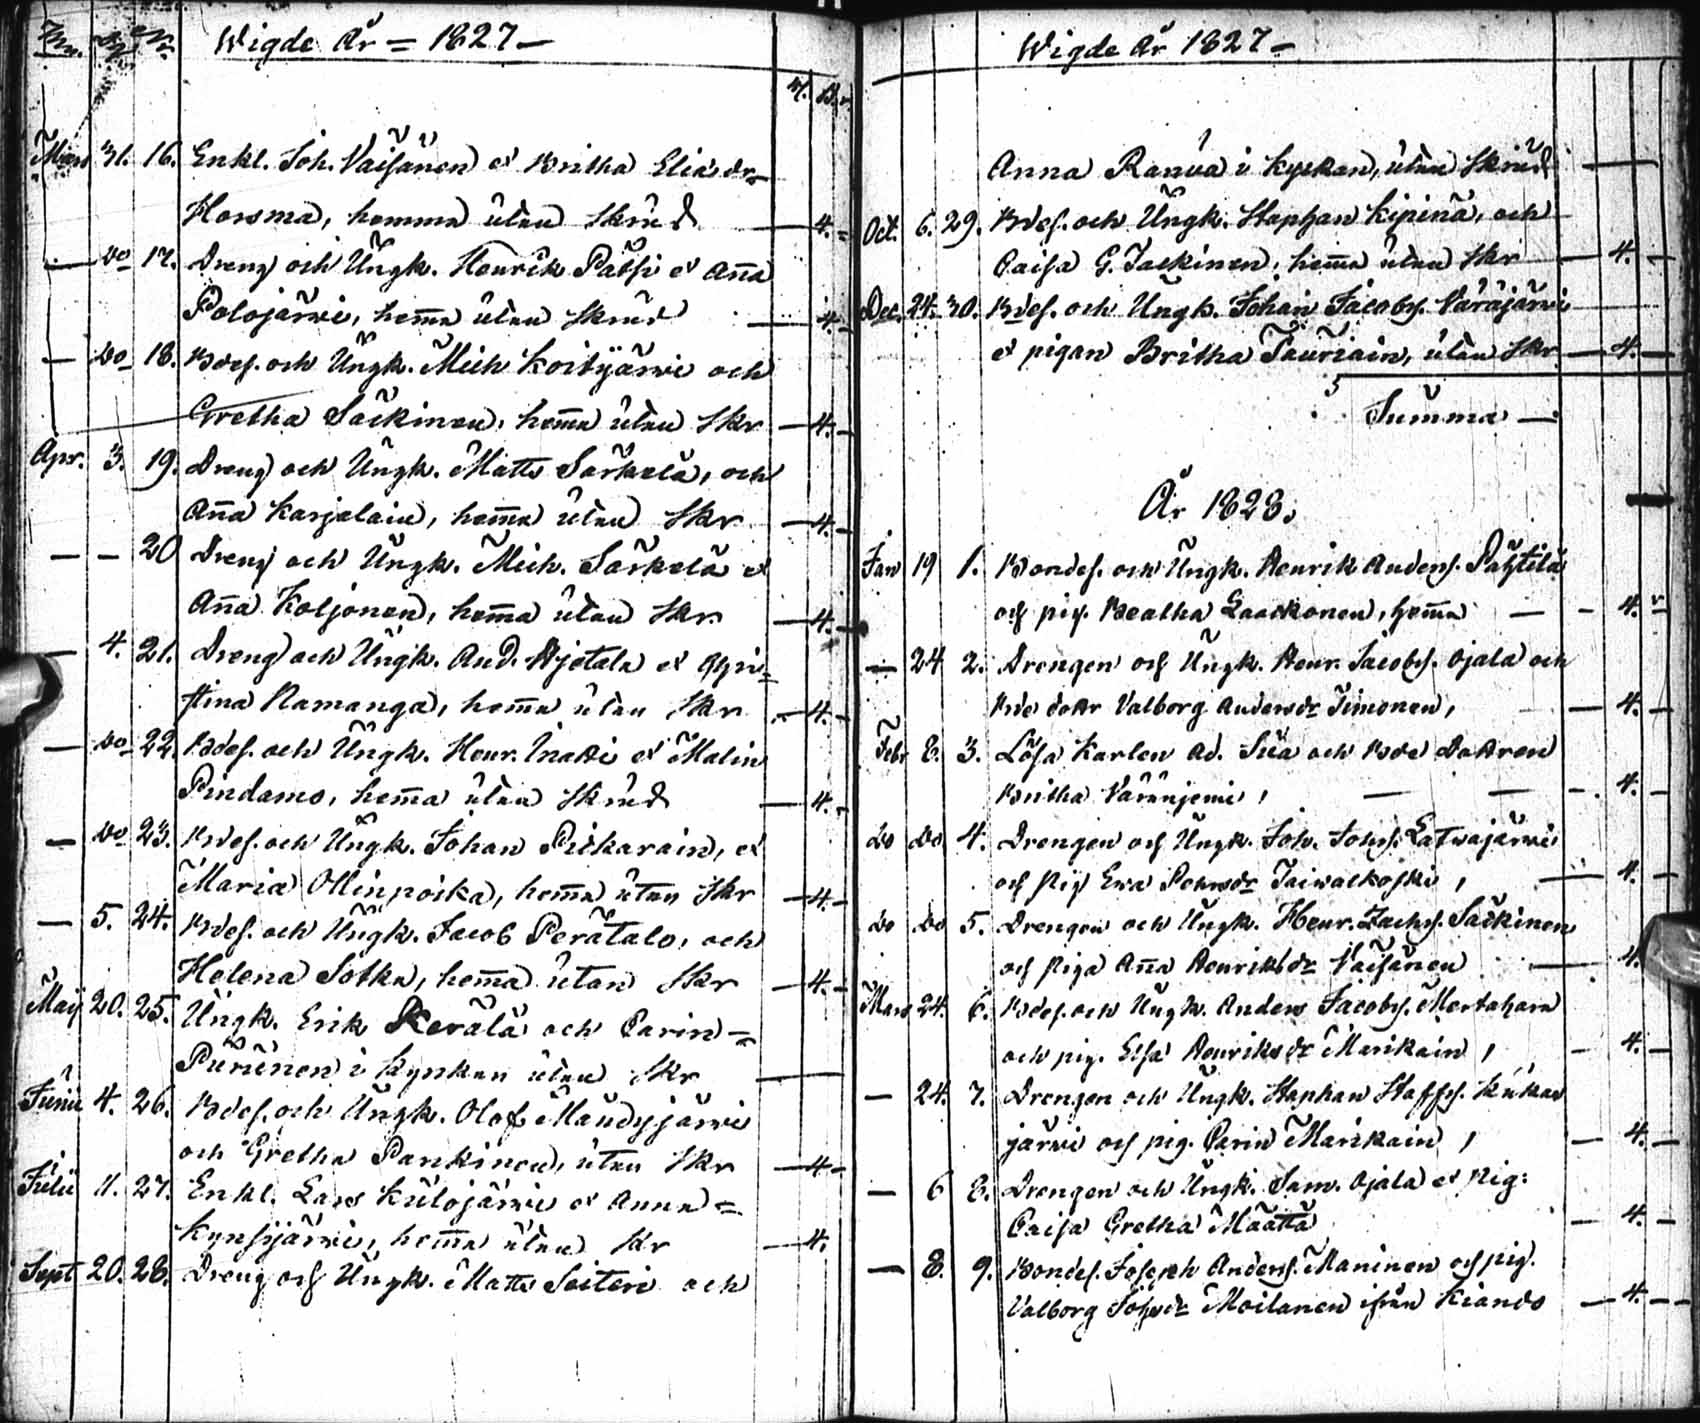 Wigde År = 1827 –
Mars 31. 16. Enkl. Joh. Vaisänen et Britha Eliædr
Horsma, hemma utan Skrud — 4. –
— do 17. Dreng och Ungk. Henrik Pätsi et Anna
Polojärvi, hemma utan Skrud — 4. –
— do 18. Bdes. och Ungk. Mich Koityärvi och
Gretha Säckinen, hemma utan Skr — 4. –
Apr. 3. 19. Dreng och Ungk. Matts Särkelä, och
Anna Karjalain, hemma utan Skr — 4. –
— — 20 Dreng och Ungk. Mich. Särkelä et
Anna Koljonen, hemma utan Skr. — 4. –
— 4. 21. Dreng och Ungk. And. Hjetala et Chri=
stina Namanga, hemma utan Skr — 4. –
— do 22. Bdes. och Ungk. Henr. Inatti et Malin
Pindamo, hemma utan Skrud — 4. –
— do 23. Bdes. och Ungk. Johan Pickarain, et
Maria Ollinpoika, hemma utan Skr — 4. –
— 5. 24. Bdes. och Ungk. Jacob Perätalo, och
Helena Sotka, hemma utan Skr — 4. –
Maij 20. 25. Ungk. Erik Kerälä och Carin =
Purunen i Kyrkan utan Skr —
Junii 4. 26. Bdes. och Ungk. Olof Maudyjärvi
och Gretha Pankinen, utan Skr — 4 –
Julii 11. 27. Enkl. Lars Kulojärvi et Anna =
Kynsijärvi, hemma utan Skr — 4.
Sept 20. 28. Dreng och Ungk. Matts Seiteri och
Wigde År 1827 –
Anna Ranua i Kyrkan, utan Skrud —
Oct. 6. 29. Bdes. och Ungk. Staphan Kipinä, och
Caisa G. Jackinen, hemma utan Skr — 4. –
Dec. 24. 30. Bdes. och Ungk. Johan Jacobs. Väräjärvi
et pigan Britha Tauriain, utan Skr — 4. –
Summa —
År 1828.
Jan 19 1. Bondes. och Ungk. Henrik Anders. Pätztilä
och pig. Beatha Laackonen, hemma — – 4. –
— 24 2. Drengen och Ungk. Henr. Jacobs. Ojala och
Bde dottr Valborg Andersdr Timonen, — 4. –
Febr 8. 3. Lösa Karlen Ad. Suä och Bde Dottren
Britha Väräinjemi, — — – 4. –
do do 4. Drengen och Ungk. Joh. Johs. Latvajärvi
och Pig Eva Pehrsdr Taivalkoski, — 4. –
do do 5. Drengen och Ungk. Henr. Zachs. Säckinen
och Piga Anna Henriksdr Vaisänen — 4.
Mars 24. 6. Bdes. och Ungk. Anders Jacobs. Mertaharn
och pig. Elsa Henriksdr Marikain, – 4. –
— 24. 7. Drengen och Ungk. Staphan Staffs. Kukas
järvi och pig. Carin Marikain, — 4. –
— 6 8. Drengen och Ungk. Sam. Ojala et Pig:
Caisa Gretha Määttä — 4. –
— 8. 9. Bondes. Joseph Anders. Maninen och pig.
Valborg Johsdr Moilanen ifrån Kiando — 4. – –